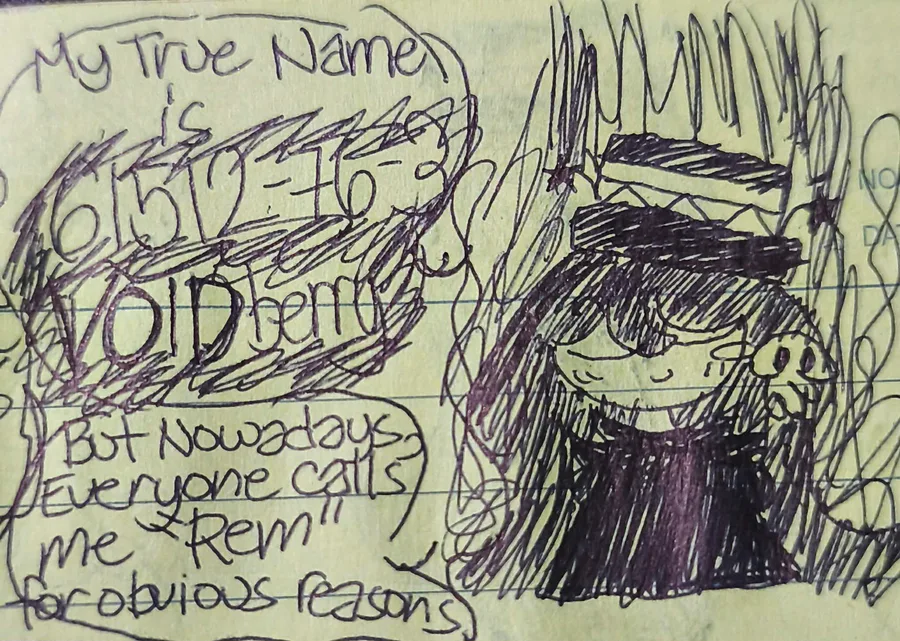 My True Name
is
VOIDberry
But Nowadays
Everyone calls
me "Rem"
for obvious reasons
NO
DA